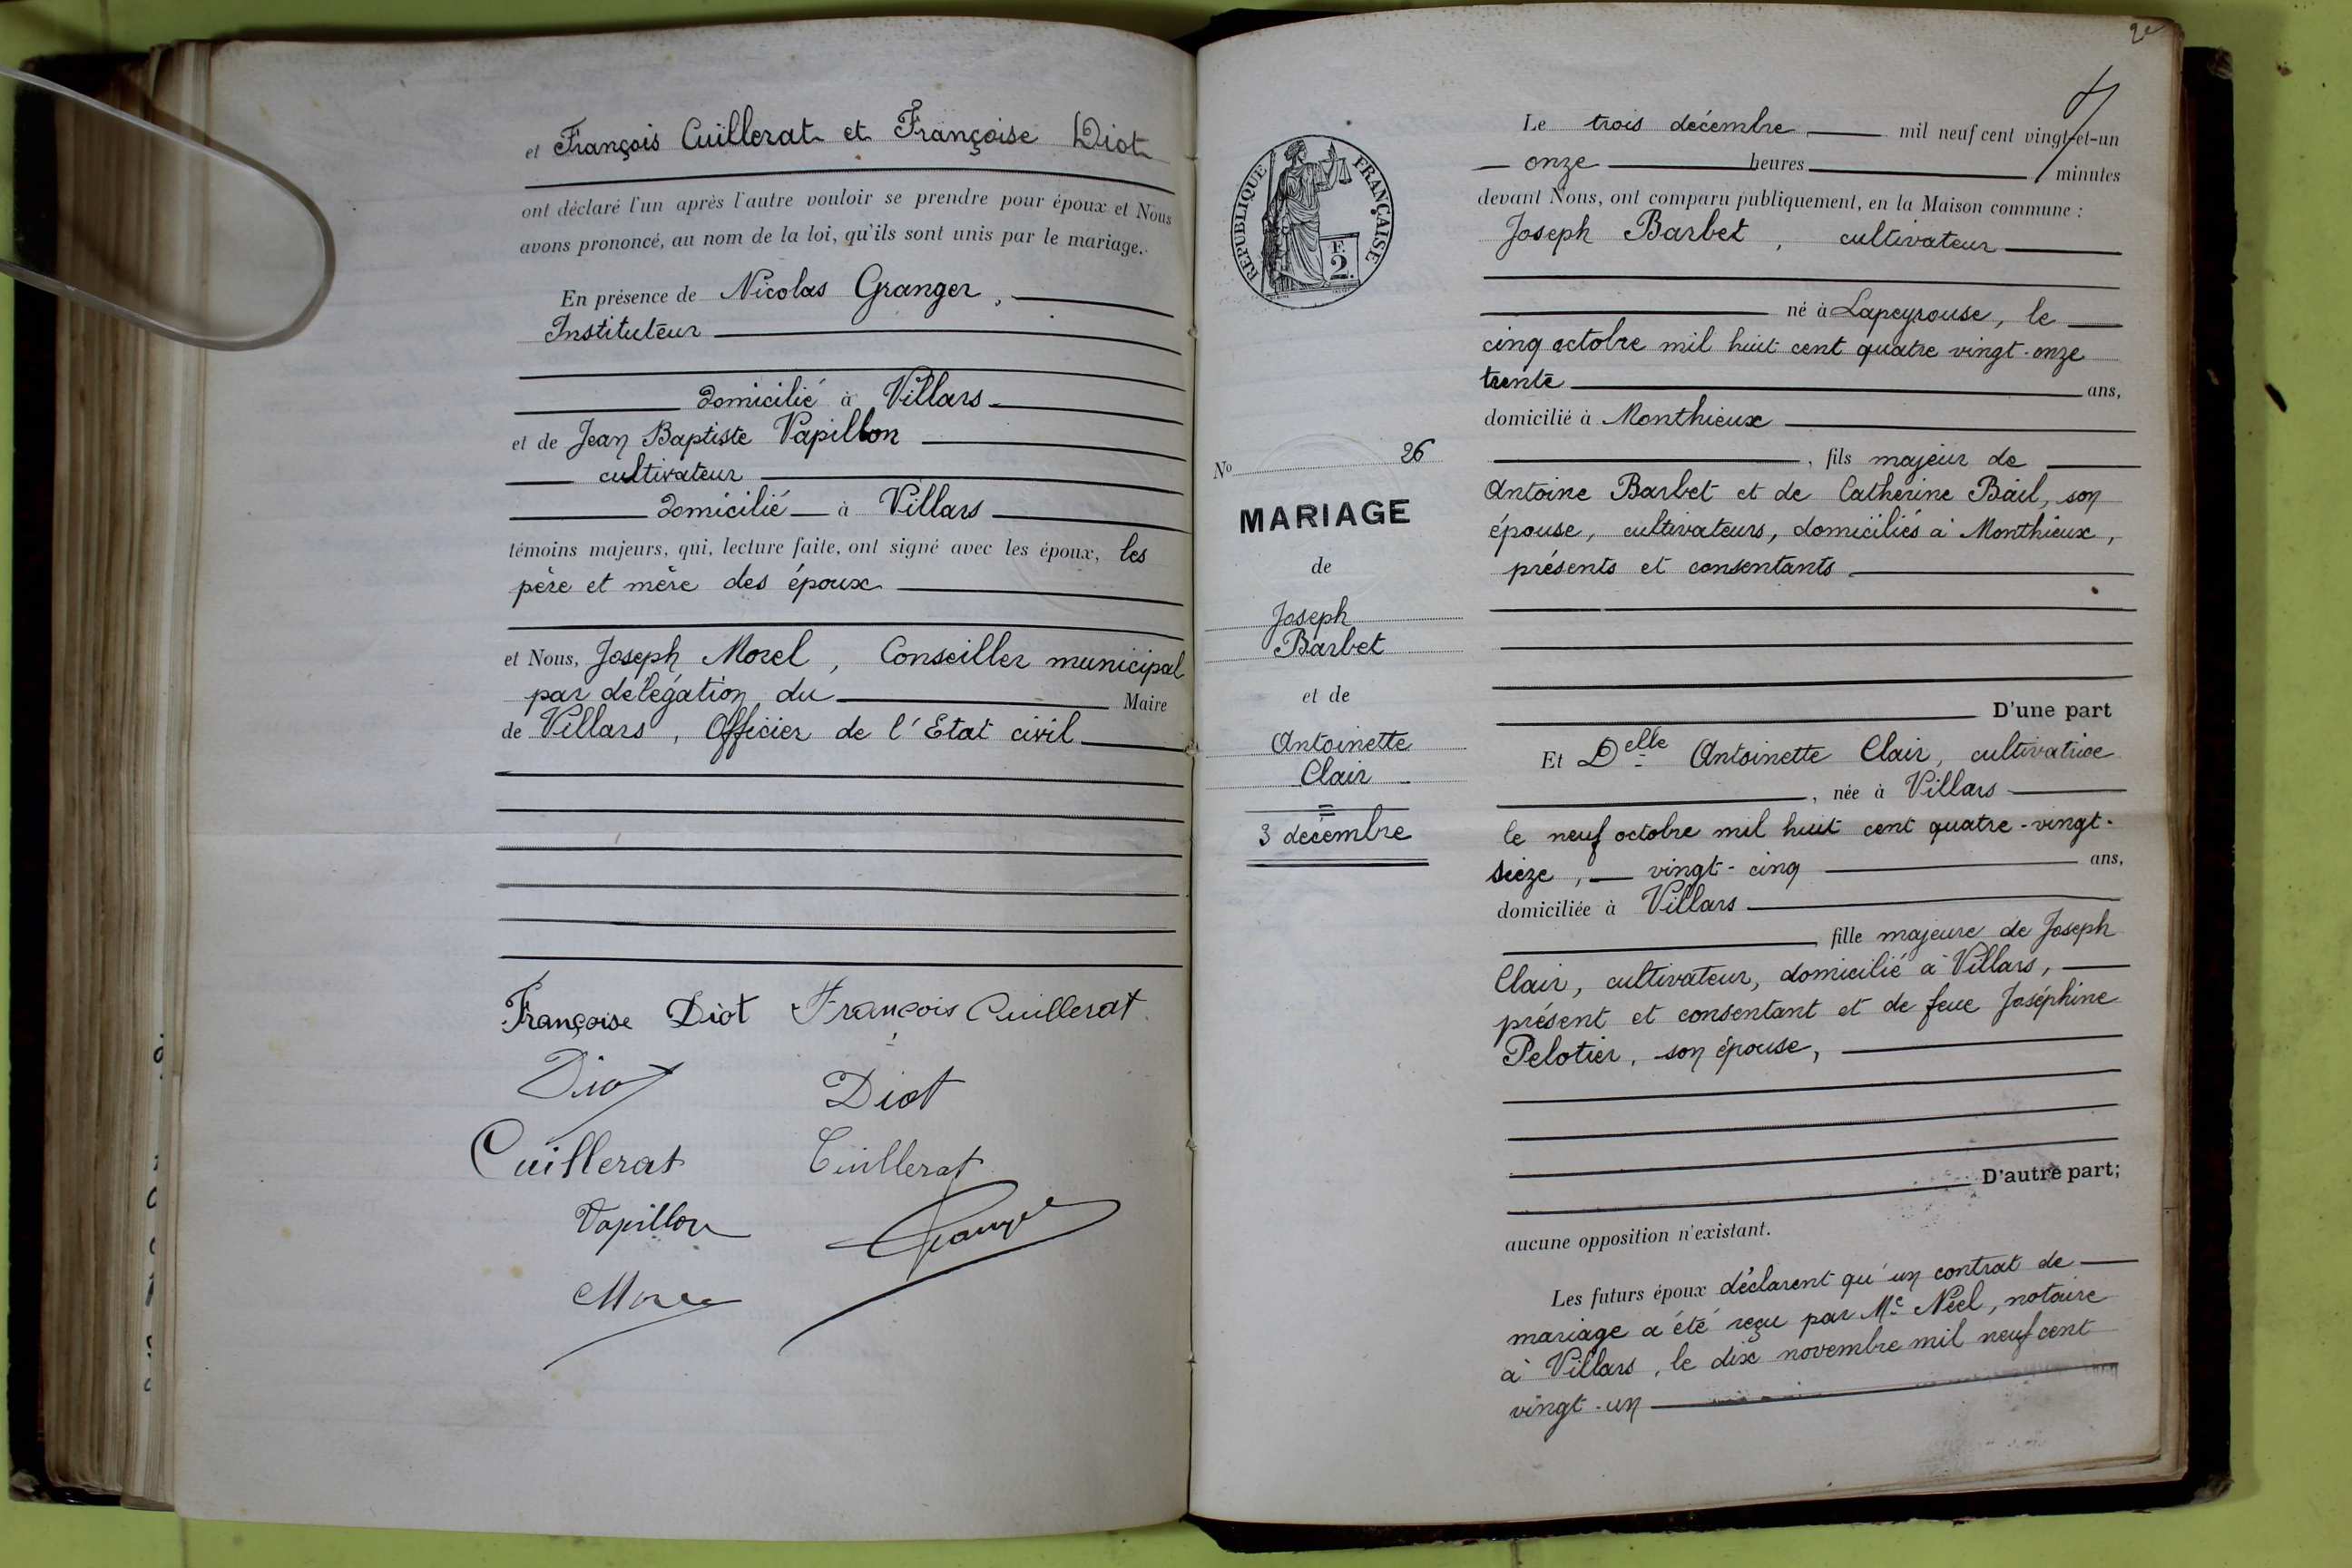 et François Cuillerat et Françoise Diot
ont déclaré l'un après l'autre vouloir se prendre pour époux et Nous
avons prononcé, au nom de la loi, qu'ils sont unis par le mariage.
En présence de Nicolas Granger,
Instituteur
domicilié à Villars
et de Jean Baptiste Papillon
cultivateur
domicilié à Villars
témoins majeurs, qui, lecture faite, ont signé avec les époux, les
père et mère des époux
et Nous, Joseph Morel, Conseiller municipal
par délégation du Maire
de Villars, Officier de l'Etat civil
Françoise Diot François Cuillerat
Diot Diot
Cuillerat Cuillerat
Papillon Granger
Morel
RÉPUBLIQUE FRANÇAISE
F.
2.
No 26
MARIAGE
de
Joseph
Barbet
et de
Antoinette
Clair
3 décembre
Le trois décembre mil neuf cent vingt-et-un
onze heures minutes
devant Nous, ont comparu publiquement, en la Maison commune :
Joseph Barbet, cultivateur
né à Lapeyrouse, le
cinq octobre mil huit cent quatre vingt-onze
trente ans,
domicilié à Monthieux
, fils majeur de
Antoine Barbet et de Catherine Bail, son
épouse, cultivateurs, domiciliés à Monthieux,
présents et consentants
D'une part
Et Delle Antoinette Clair, cultivatrice
, née à Villars
le neuf octobre mil huit cent quatre-vingt-
sieze, vingt-cinq ans,
domiciliée à Villars
, fille majeure de Joseph
Clair, cultivateur, domicilié à Villars,
présent et consentant et de feue Joséphine
Pelotier, son épouse,
D'autre part;
aucune opposition n'existant.
Les futurs époux déclarent qu'un contrat de
mariage a été reçu par Me Néel, notaire
à Villars, le dix novembre mil neuf cent
vingt-un